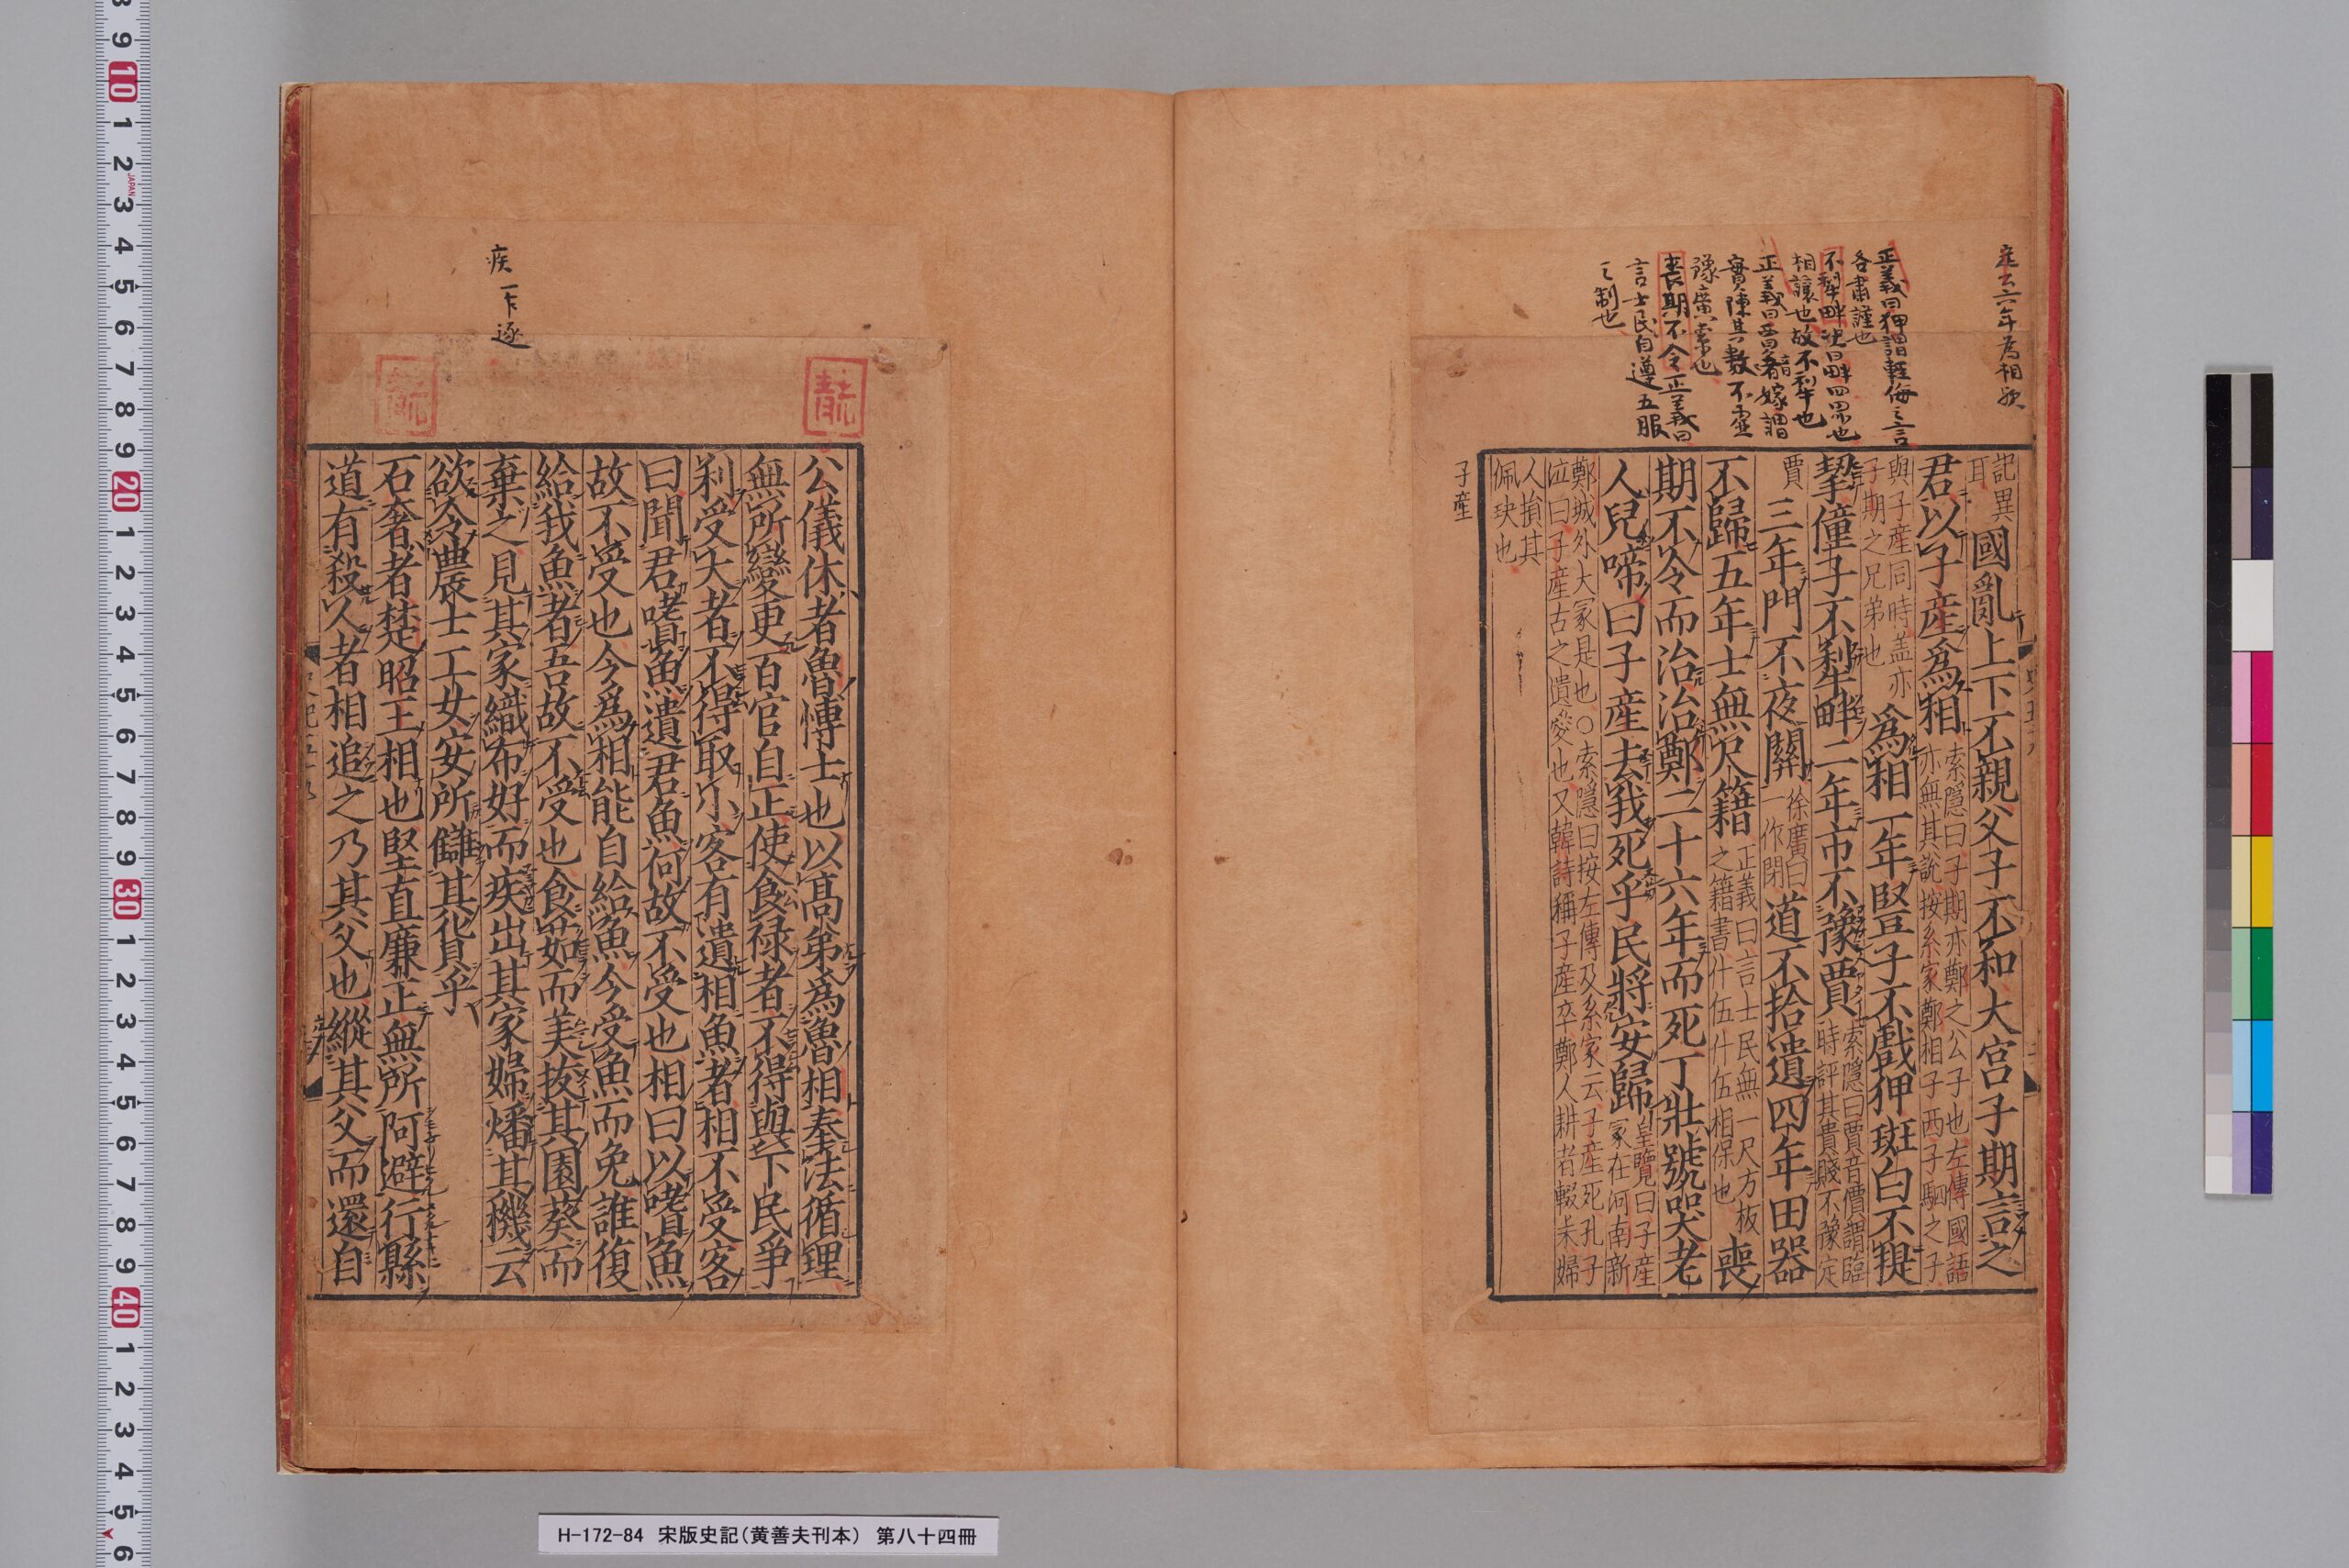 記異
耳
國亂上下不親父子不和大宮子期言之
君以子産爲相
索隱曰子期亦鄭之公子也左傳國語
亦無其說按系家鄭相子西子駟之子
與子産同時盖亦
子期之兄弟也
爲相一年豎子不戲狎斑白不提
挈僮子不犁畔二年市不豫賈
索隱曰賈音價謂臨
時評其貴賤不豫定
賈
三年門不夜關
徐廣曰
一作閉
道不拾遺四年田器
不歸五年士無尺籍
正義曰言士民無一尺方板
之籍書什伍什伍相保也
喪
期不令而治治鄭二十六年而死丁壯號哭老
人兒啼曰子産去我死乎民將安歸
皇覽曰子産
冢在河南新
鄭城外大冢是也○索隱曰按左傳及系家云子産死孔子
泣曰子産古之遺愛也又韓詩稱子産卒鄭人耕者輟耒婦
人損其
佩玦也
子産
正義曰狎謂輕侮之言
各肅謹也
不犁畔
相讓也故不犁也
實陳其數不虛
豫廣索也
喪期不令正義曰
言士民自遵五服
之制也
公儀休者魯愽士也以高弟爲魯相奉法循理
無所變更百官自正使食禄者不得與下民爭
利受大者不得取小客有遺相魚者相不受客
曰聞君嗜魚遺君魚何故不受也相曰以嗜魚
故不受也今爲相能自給魚今受魚而免誰復
給我魚者吾故不受也食茹而美拔其園葵而
棄之見其家織布好而疾出其家婦燔其機云
欲令農士工女安所讎其貨乎
石奢者楚昭王相也堅直廉正無所阿避行縣
道有殺人者相追之乃其父也縱其父而還自
疾一乍逐
H-172-84 宋版史記（黄善夫刊本） 第八十四冊